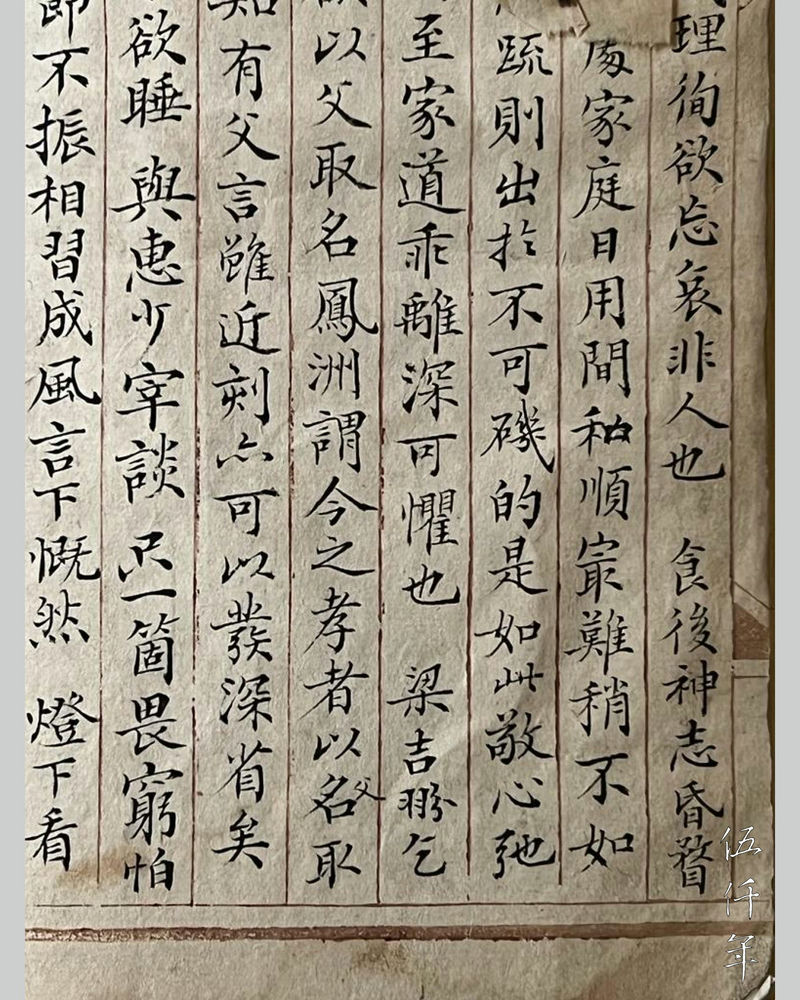 理徇欲忘哀非人也 食後神志昏瞀
家庭日用間和順最難稍不如
疏則出於不可磯的是如此敬心弛
至家道乖離深可懼也 梁吉翂乞
以父取名鳳洲謂今之孝者以名父取
知有父言雖近刻亦可以發深省矣
欲睡 與惠少宰談 只一箇畏窮怕
即不振相習成風言下慨然 燈下看
伍仟年